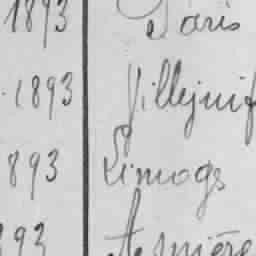 1893 Paris
1893 Villejuif
893 Limogs
893 Asnière